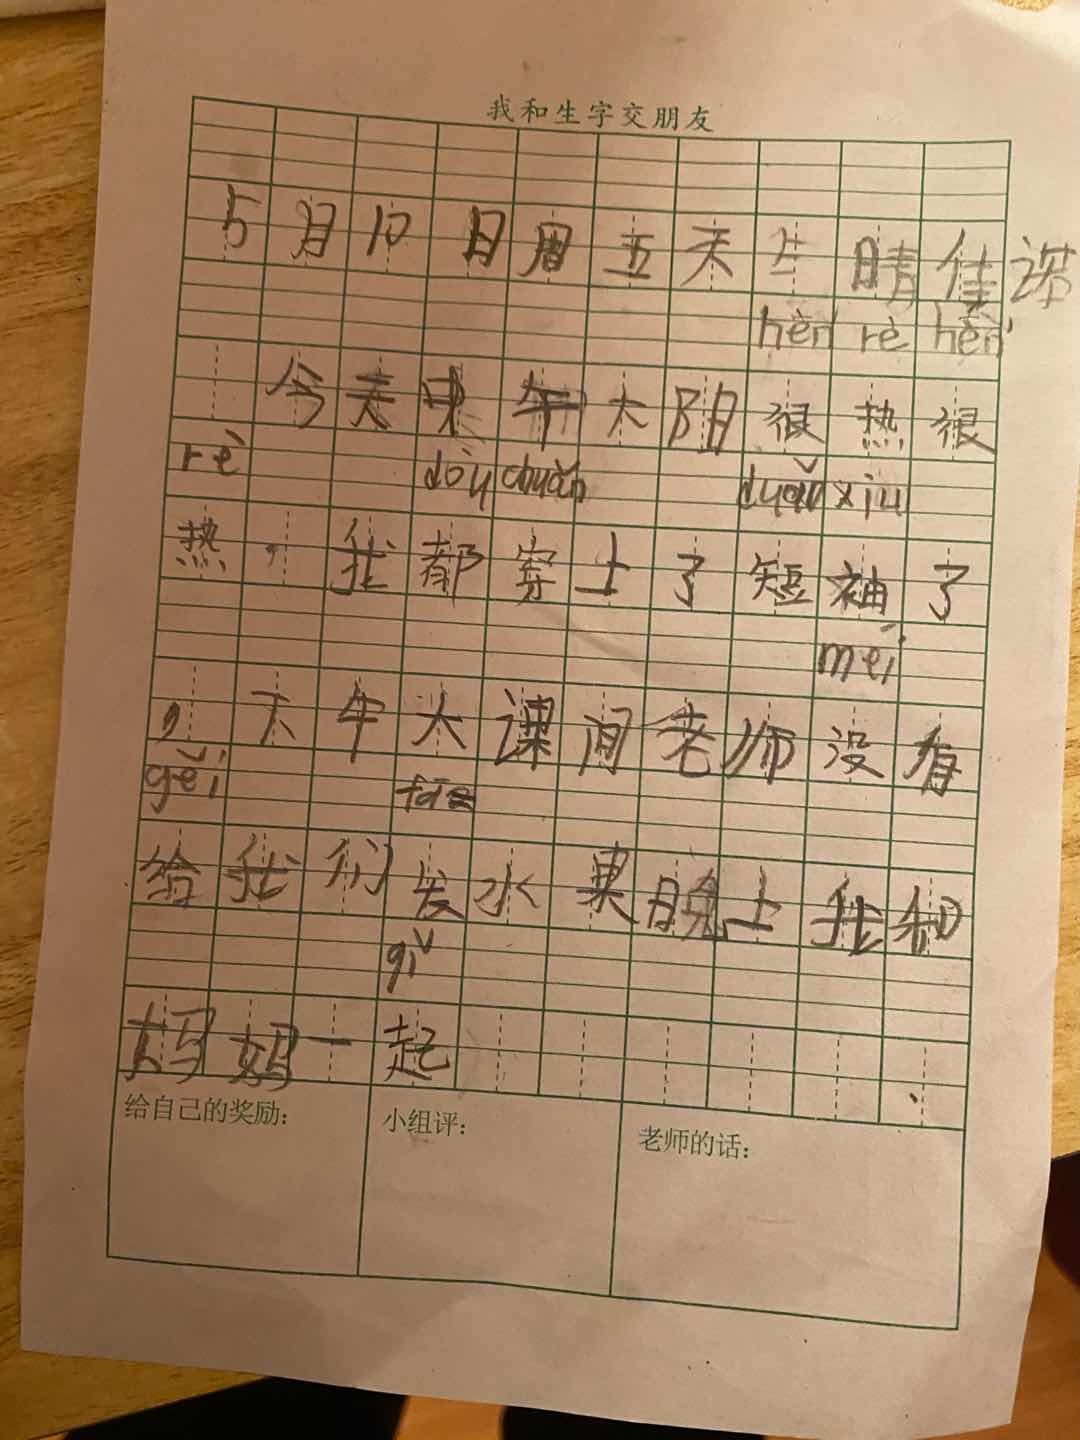 我和生字交朋友
5月10日周五天生晴佳诺
hěn rè hěn
今天中午太阳很热很
rè dōu chuān duǎn xiù
热,我都穿上了短袖了
méi
,下午大课间老师没有
gěi fā
给我们发水果晚上我和
qǐ
妈妈一起
给自己的奖励: 小组评: 老师的话: